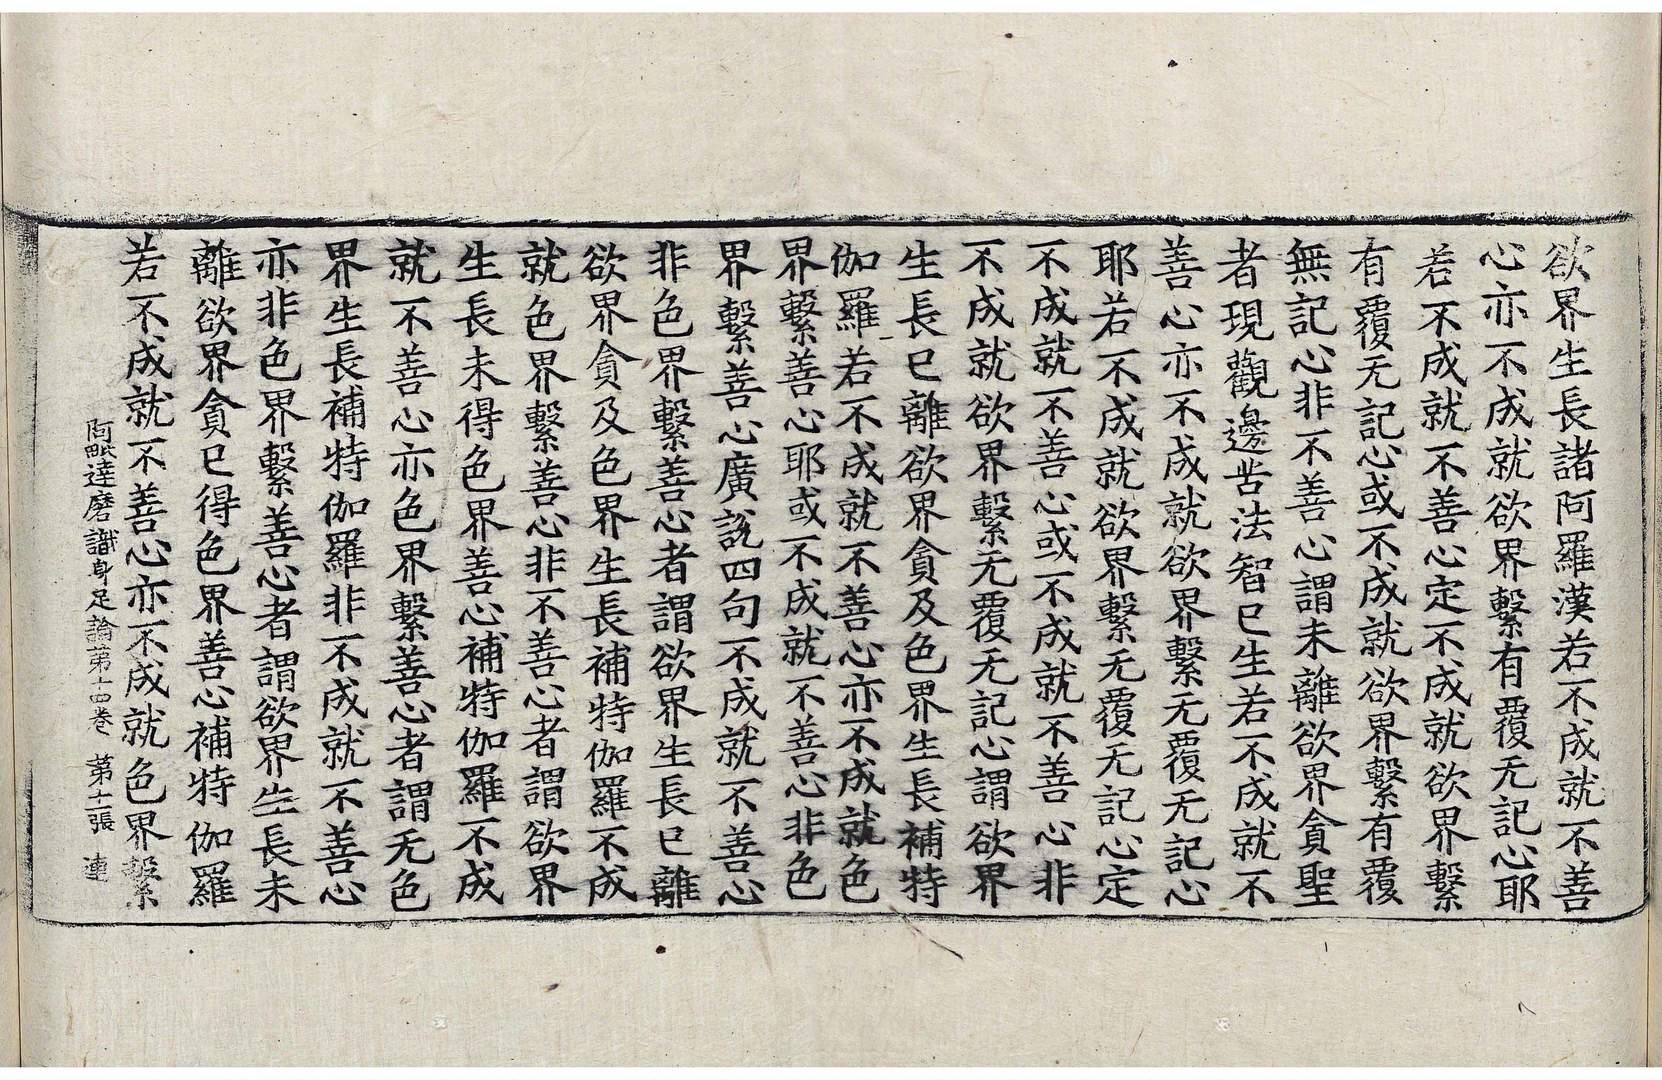 欲界生長諸阿羅漢若不成就不善
心亦不成就欲界繫有覆无記心耶
若不成就不善心定不成就欲界繫
有覆无記心或不成就欲界繫有覆
無記心非不善心謂未離欲界貪聖
者現觀邊苦法智已生若不成就不
善心亦不成就欲界繫无覆无記心
耶若不成就欲界繫无覆无記心定
不成就不善心或不成就不善心非
不成就欲界繫无覆无記心謂欲界
生長已離欲界貪及色界生長補特
伽羅若不成就不善心亦不成就色
界繫善心耶或不成就不善心非色
界繫善心廣說四句不成就不善心
非色界繫善心者謂欲界生長已離
欲界貪及色界生長補特伽羅不成
就色界繫善心非不善心者謂欲界
生長未得色界善心補特伽羅不成
就不善心亦色界繫善心者謂无色
界生長補特伽羅非不成就不善心
亦非色界繫善心者謂欲界生長未
離欲界貪已得色界善心補特伽羅
若不成就不善心亦不成就色界繫
阿毗達磨識身足論第十四卷 第十張 連